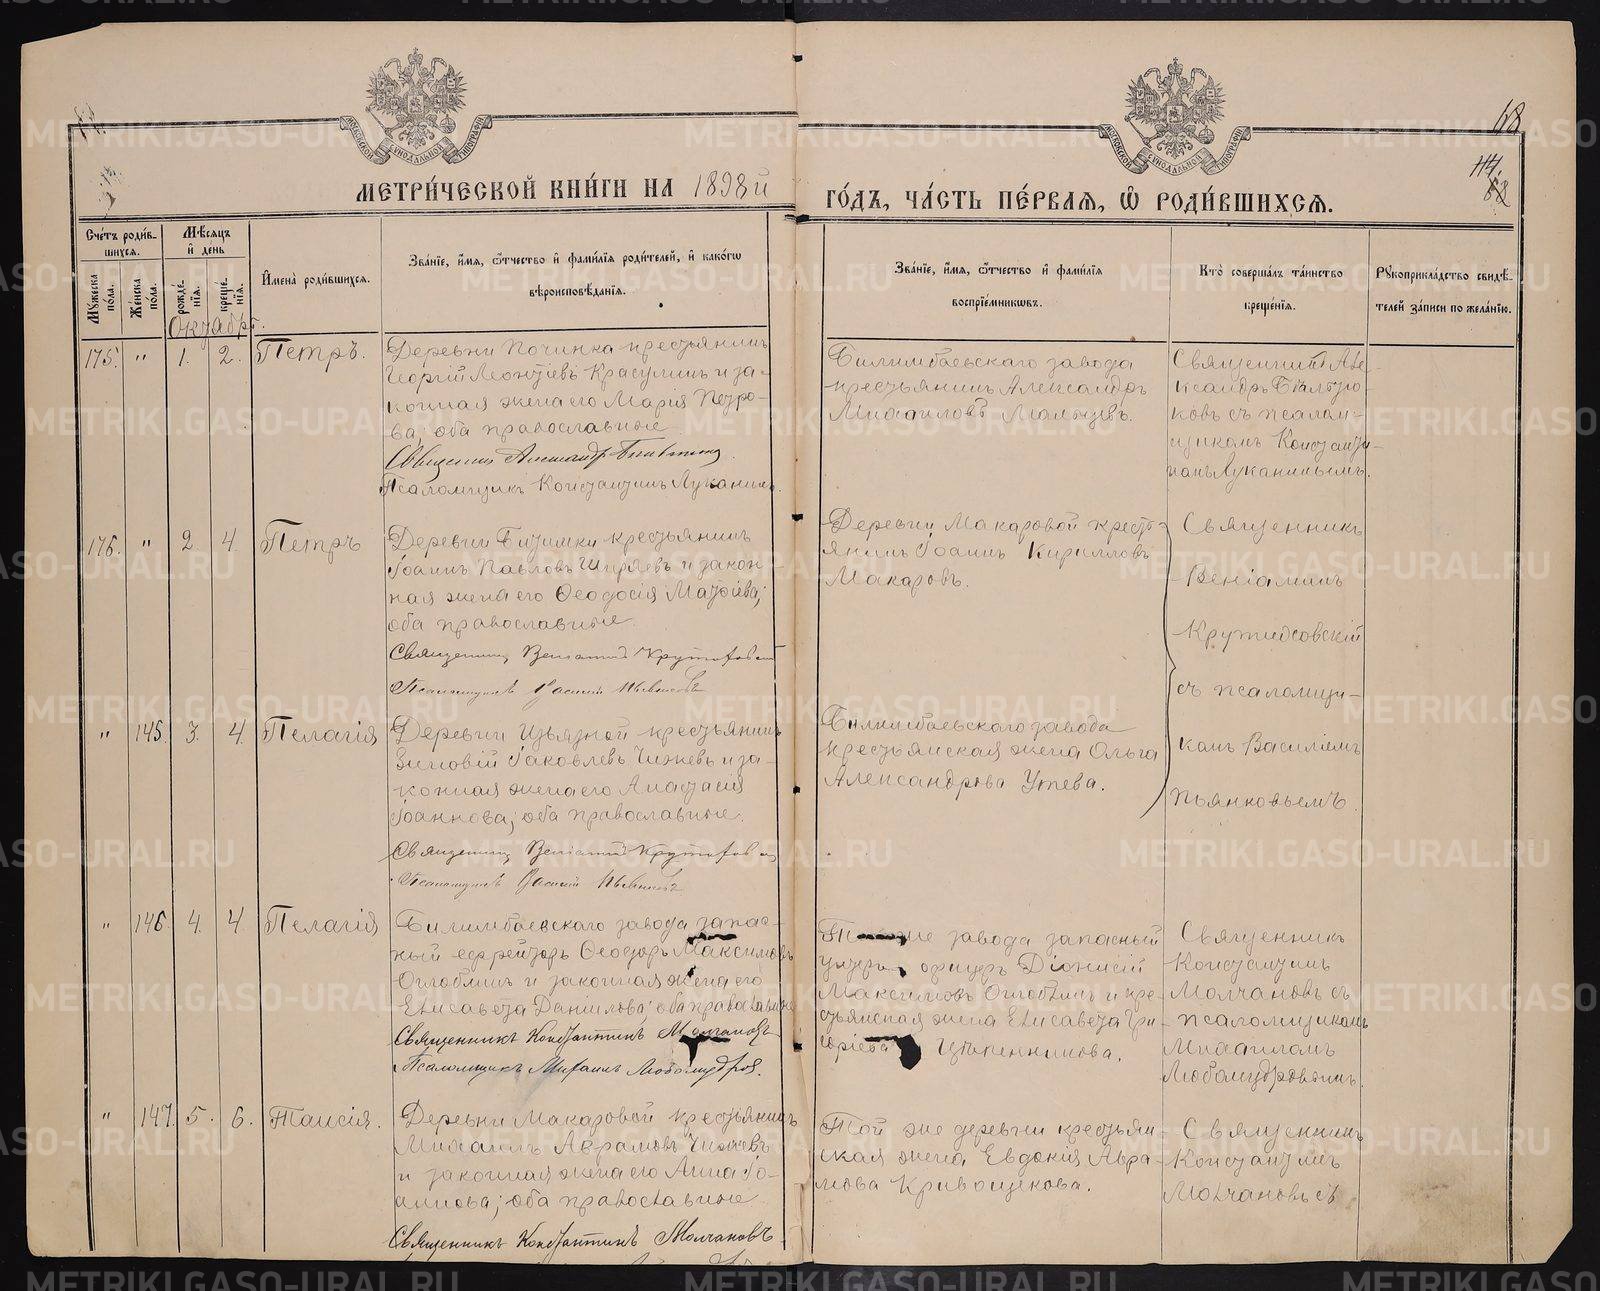 МЕТРИ́ЧЕСКОЙ КНИ́ГИ НА 1898й ГО́ДЪ, ЧА́СТЬ ПЕ́РВАЯ, Ѡ РОДИ́ВШИХСЯ.
68
114.
Сче́тъ роди́вшихся.
Мѣ́сяцъ и҆ де́нь
Мꙋ́жеска по́ла.
Же́нска по́ла.
рожде́нїѧ.
креще́нїѧ.
И҆мена̀ роди́вшихся.
Зва́нїе, и҆́мѧ, ѻ҆́тчество и҆ фами́лїѧ роди́телей, и҆ како́гѡ
вѣроисповѣ́данїѧ.
Зва́нїе, и҆́мѧ, ѻ҆́тчество и҆ фами́лїѧ
воспрїе́мникѡвъ.
Кто̀ соверша́лъ та́инство
креще́нїѧ.
Рꙋкоприкла́дство свидѣ́-
телей за́писи по жела́нїю.
Октябрь.
175. " 1. 2. Петръ.
Деревни Починка крестьянинъ
Георгій Леонтіевъ Красулинъ и за-
конная жена его Марія Петро-
ва; оба православные
Священникъ Александръ
Псаломщикъ Константинъ Луканинъ.
Билимбаевскаго завода
крестьянинъ Александръ
Михаиловъ Мальцевъ.
Священникъ Але-
ксандръ
ковъ съ псалом-
щикомъ Константи-
номъ Луканинымъ.
176. " 2. 4. Петръ
Деревни Битимки крестьянинъ
Іоаннъ Павловъ Ширяевъ и закон
ная жена его Ѳеодосія Матѳіева;
оба православные
Священникъ Веніаминъ
Псаломщикъ Василій Пьянковъ
Деревни Макаровой крестъ-
янинъ Іоаннъ Кирилловъ
Макаровъ.
Священникъ
Веніаминъ
съ псаломщи-
комъ Василіемъ
Пьянковымъ.
" 145. 3. 4. Пелагія
Деревни Извязной крестьянинъ
Зиновій Іаковлевъ Чижевъ и за-
конная жена его Анастасія
Іоаннова; оба православные.
Священникъ Веніаминъ
Псаломщикъ Василій Пьянковъ
Билимбаевскаго завода
крестьянская жена Ольга
Александрова Утева.
" 146. 4. 4 Пелагія
Билимбаевскаго завода запас-
ный ефрейторъ Ѳеодоръ Максимовъ
Оглоблинъ и законная жена его
Елисавета Даніилова; оба православные
Священникъ Константинъ Молчановъ
Псаломщикъ Михаилъ Любомудровъ.
завода запасный
унтеръ офицеръ Діонисій
Максимовъ Оглоблинъ и кре-
стьянская жена Елисавета Гри-
горіева
Священникъ
Константинъ
Молчановъ съ
псаломщикомъ
Михаиломъ
Любомудровымъ.
" 147. 5. 6. Таисія.
Деревни Макаровой крестьянинъ
Михаилъ Аврамовъ Чижевъ
и законная жена его Анна Іо-
аннова; оба православные
Священникъ Константинъ Молчановъ
Той же деревни крестьян
ская жена Евдокія Авра-
мова Кривощекова.
Священникъ
Константинъ
Молчановъ съ
METRIKI.GASO-URAL.RU